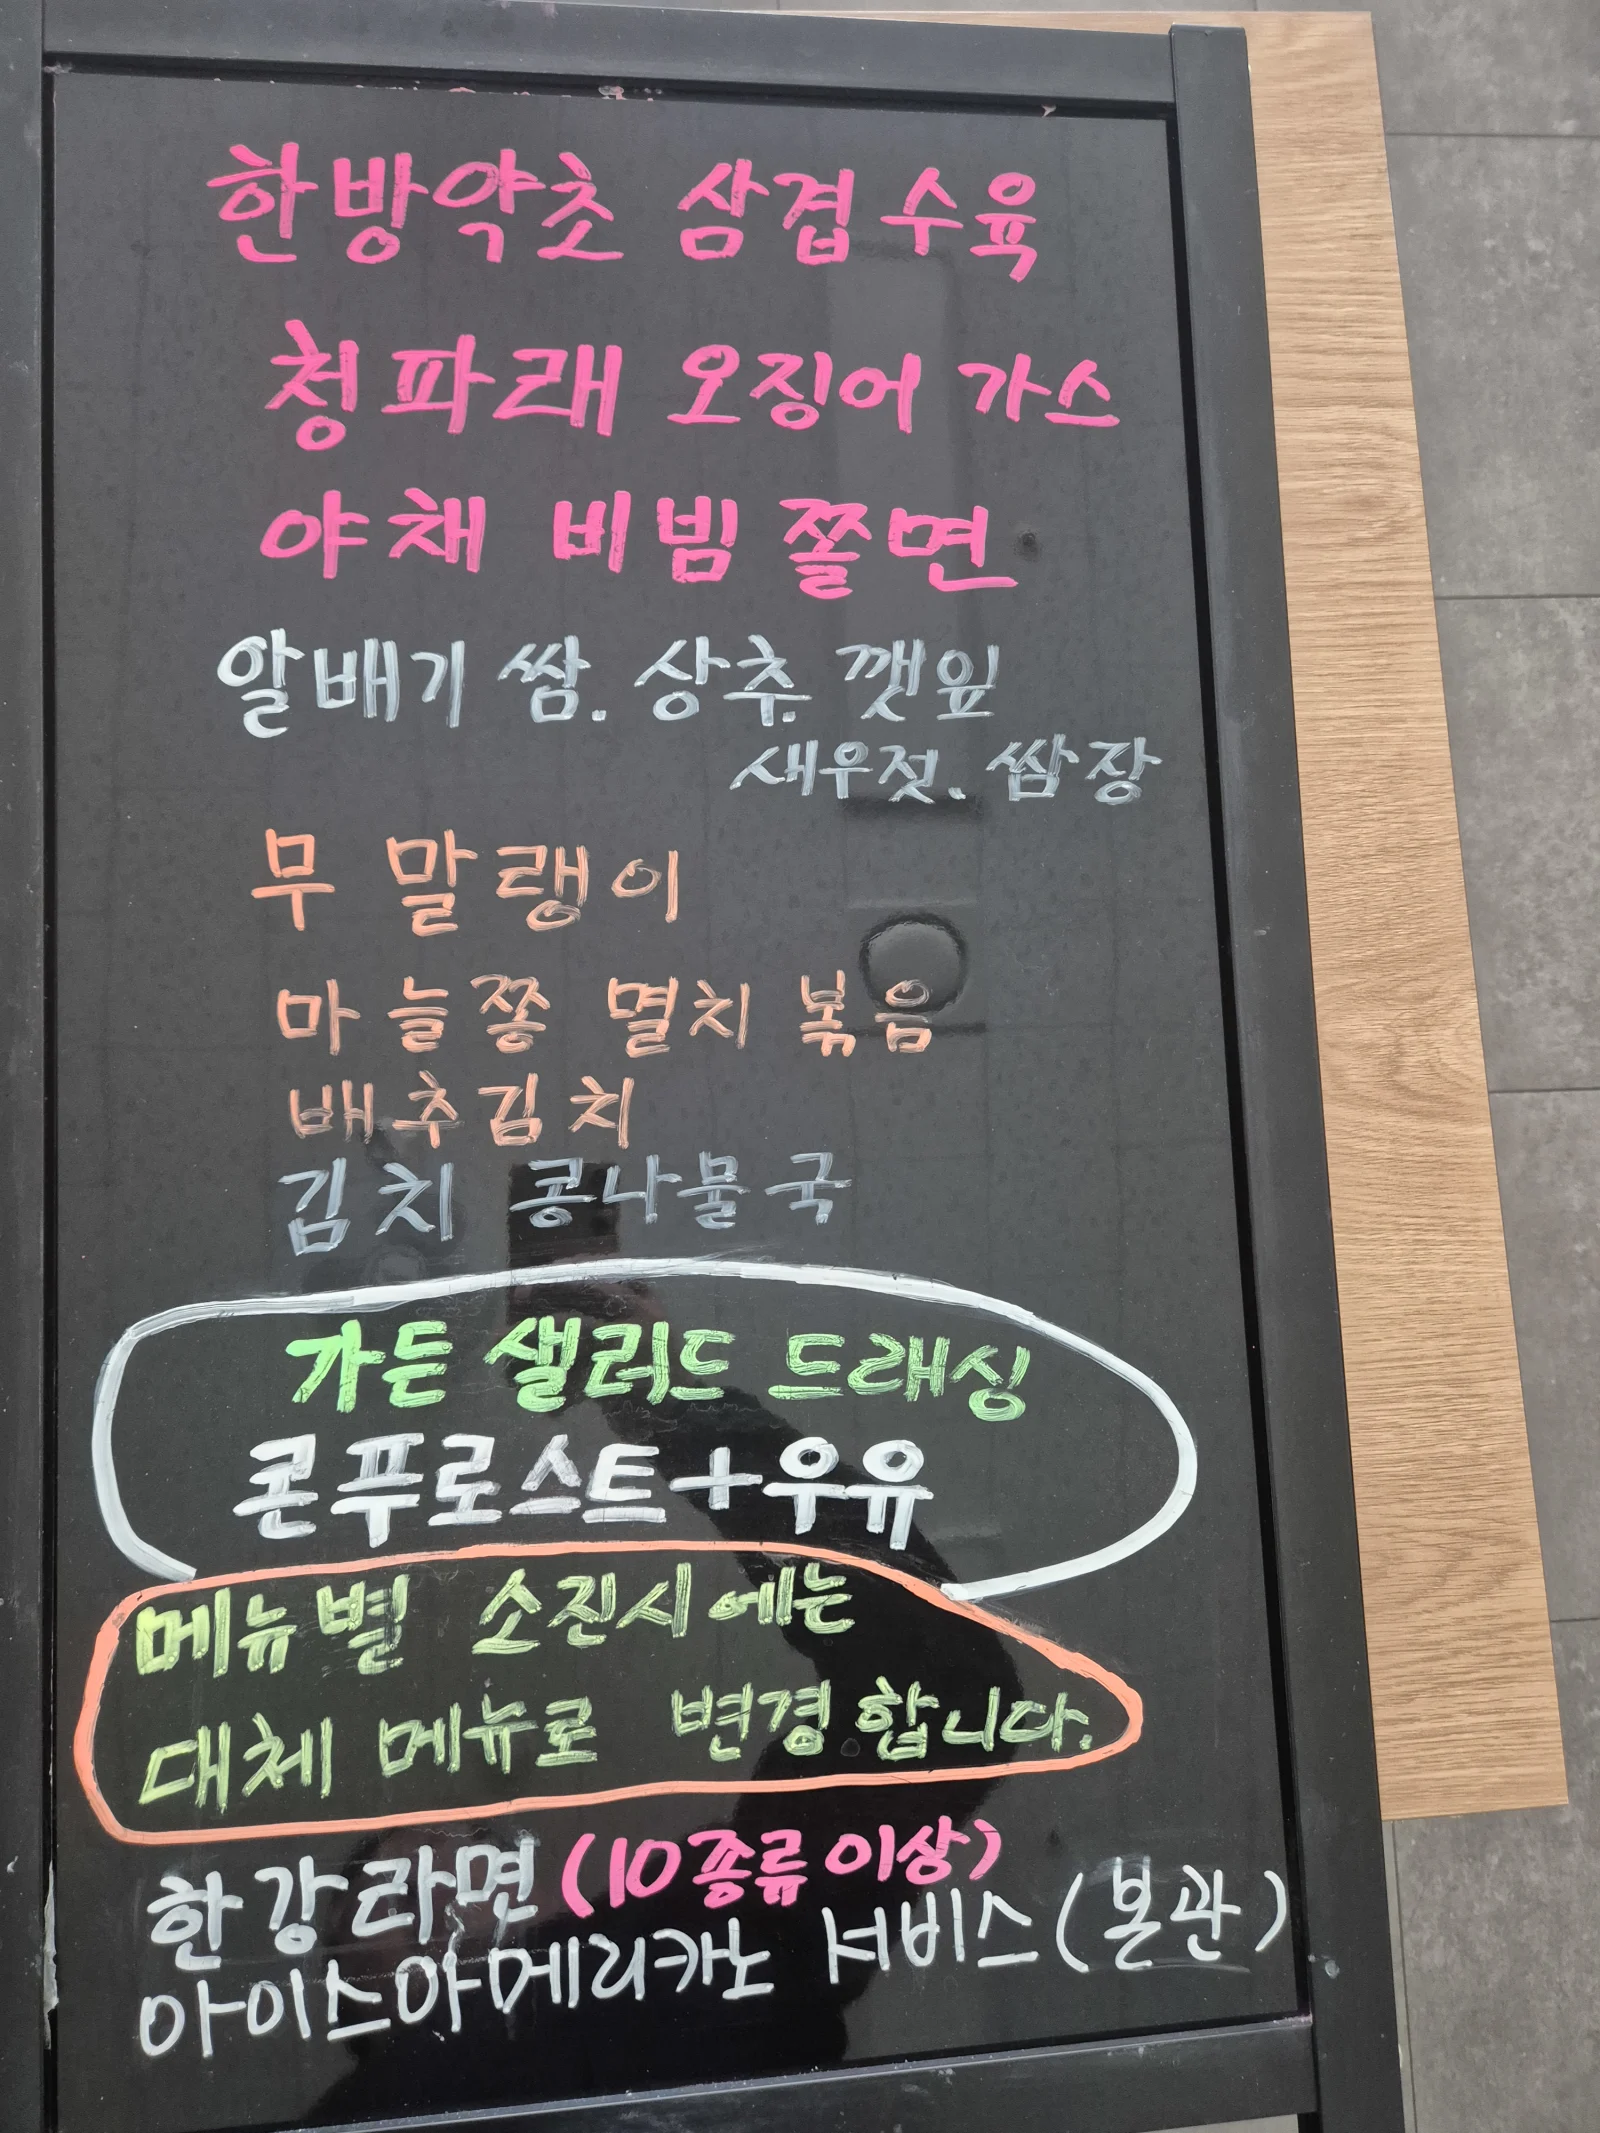 한방약초 삼겹수육
청파래 오징어 가스
야채 비빔쫄면
알배기 쌈. 상추. 깻잎
새우젓. 쌈장
무 말랭이
마늘쫑 멸치 볶음
배추김치
김치 콩나물국
가든 샐러드 드래싱
콘푸로스트+우유
메뉴별 소진시에는
대체 메뉴로 변경합니다.
한강라면 (10종류이상)
아이스아메리카노 서비스(본관)